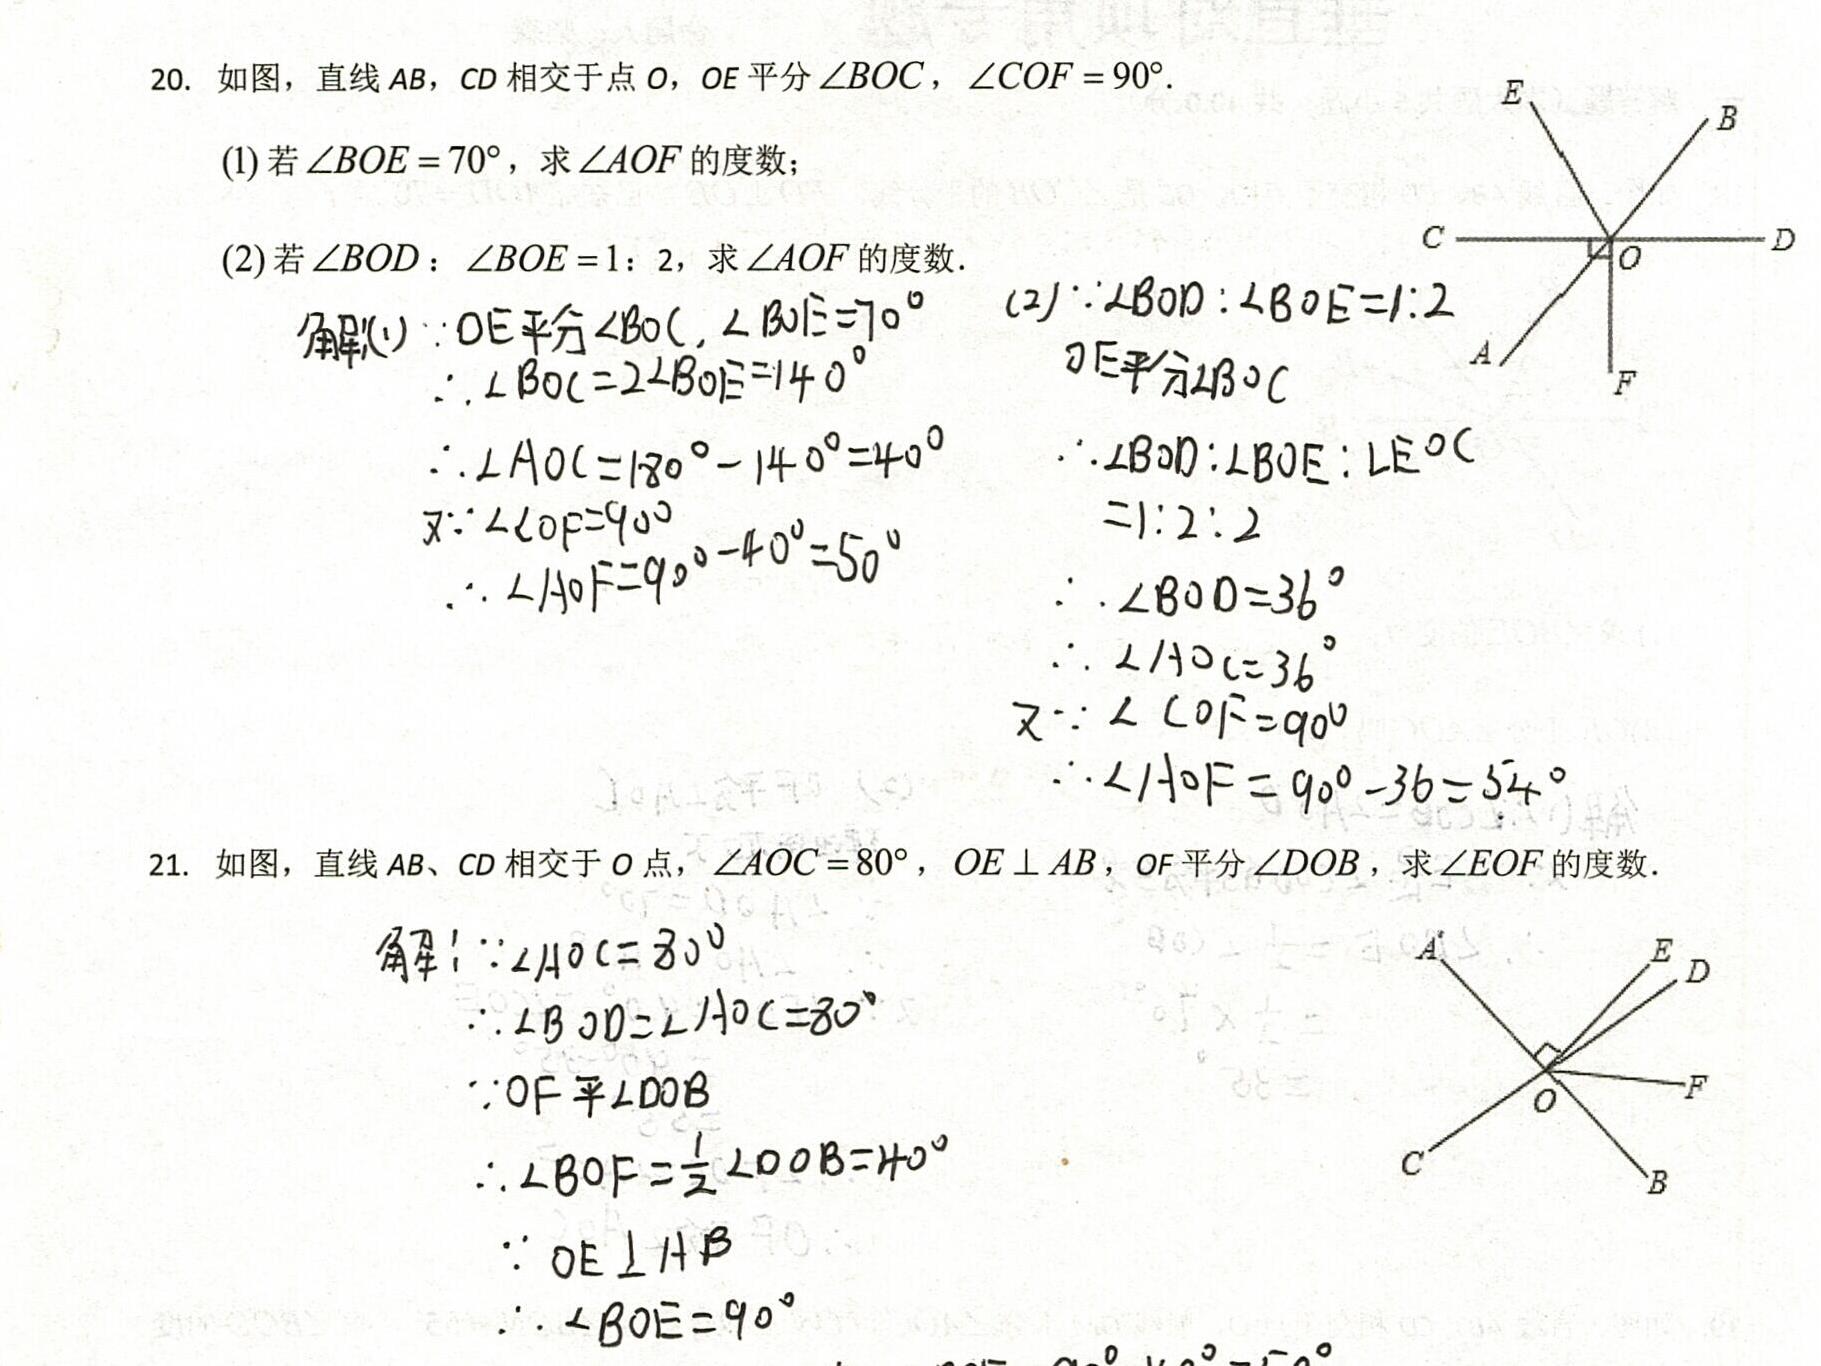 20. 如图，直线 AB，CD 相交于点 O，OE 平分 ∠BOC，∠COF = 90°.
(1) 若 ∠BOE = 70°，求 ∠AOF 的度数；
(2) 若 ∠BOD：∠BOE = 1：2，求 ∠AOF 的度数.
E
B
C
O
D
A
F
解(1) ∵OE平分∠BOC, ∠BOE=70°
∴∠BOC=2∠BOE=140°
∴∠AOC=180°-140°=40°
又∵∠COF=90°
∴∠AOF=90°-40°=50°
(2)∵∠BOD:∠BOE=1:2
OE平分∠BOC
∴∠BOD:∠BOE:∠EOC
=1:2:2
∴∠BOD=36°
∴∠AOC=36°
又∵∠COF=90°
∴∠AOF=90°-36=54°
21. 如图，直线 AB、CD 相交于 O 点，∠AOC = 80°，OE ⊥ AB，OF 平分 ∠DOB，求 ∠EOF 的度数.
A
E
D
F
O
C
B
解:∵∠AOC=80°
∴∠BOD=∠AOC=80°
∵OF平∠DOB
∴∠BOF=1/2∠DOB=40°
∵OE⊥AB
∴∠BOE=90°